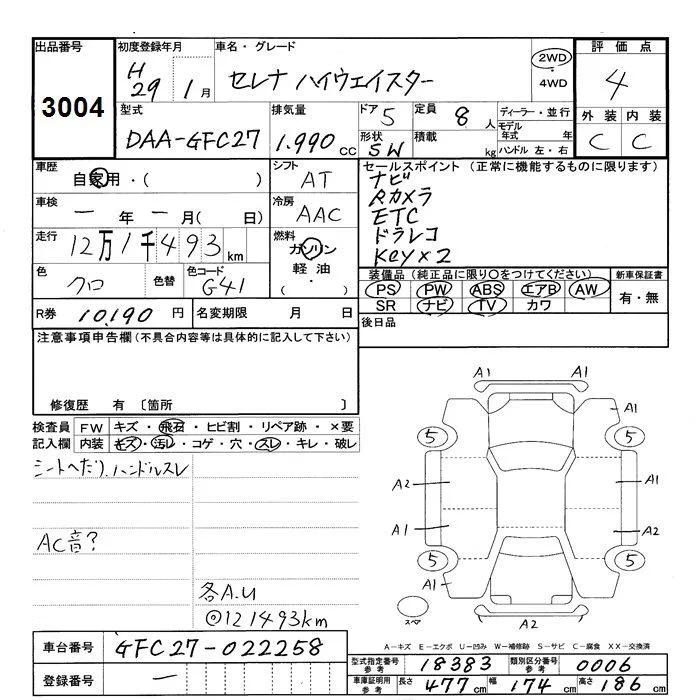 出品番号
3004
初度登録年月
H29 1月
車名・グレード
セレナ ハイウェイスター
2WD
4WD
評価点
4
外装 内装
C C
型式
DAA-GFC27
排気量
1.990 cc
ドア 5
形状 SW
定員 8 人
積載 kg
ディーラー・並行
モデル年式 年
ハンドル 左・右
車歴
自家用・( )
シフト
AT
車検
一年一月(日)
冷房
AAC
走行
12万1千493km
燃料
ガソリン
軽油
・
色
クロ
色替
色コード
G41
R券 10,190 円
名変期限 月 日
セールスポイント (正常に機能するものに限ります)
ナビ
Rカメラ
ETC
ドラレコ
Key×2
装備品(純正品に限り○をつけてください)
PS PW ABS エアB AW
SR ナビ TV カワ
新車保証書
有・無
後日品
注意事項申告欄(不具合内容等は具体的に記入して下さい)
修復歴 有 〔箇所 〕
検査員記入欄
FW キズ・飛石・ヒビ割・リペア跡・×要
内装 キズ・汚レ・コゲ・穴・スレ・キレ・破レ
シートへたり、ハンドルスレ
AC音?
各A.U
◎121493km
A1 A1
A1
5 5
A2 A1
A1 A2
5 5
A1
スペア
A2
A-キズ E-エクボ U-凹み W-補修跡 S-サビ C-腐食 XX-交換済
車台番号 GFC27-022258
登録番号 一
型式指定番号 参考 18383
類別区分番号 参考 0006
車庫証明用 参考 長さ 477cm 幅 174cm 高さ 186cm